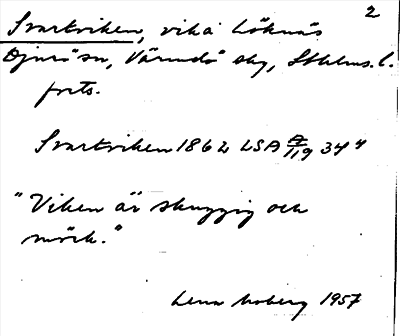 2
Svartviken, vik i Löknäs
Djurö sn, Värmdö skg, Sthlms. l.
forts.
Svartviken 1862 LSA A 119 34 4
"Viken är skuggig och
mörk."
Lena Moberg 1957